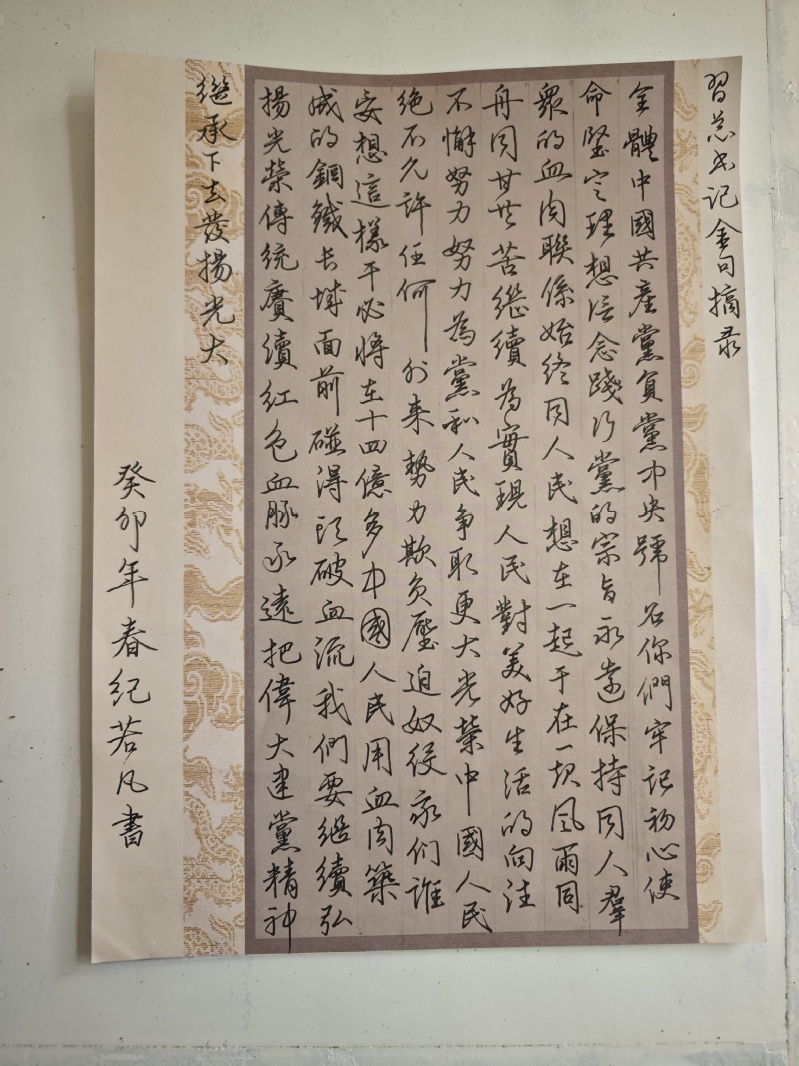 習总书记金句摘录
全體中國共産黨員黨中央號召你們牢记初心使
命堅定理想信念踐行黨的宗旨永遠保持同人羣
衆的血肉聯係始終同人民想在一起干在一起風雨同
舟同甘共苦繼續為實現人民對美好生活的向往
不懈努力努力為黨和人民争取更大光榮中國人民
绝不允許任何外来勢力欺负壓迫奴役我们誰
妄想這樣干必將在十四億多中國人民用血肉築
成的鋼鐵长城面前碰得头破血流我們要繼續弘
揚光榮傳統賡續紅色血脉永遠把偉大建黨精神
继承下去發揚光大
癸卯年春纪若凡書